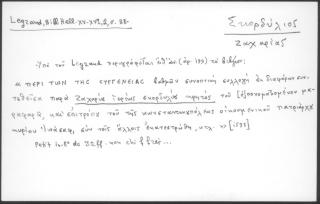 Legrand, Bibl. Hell. XV-XVI, 2, σ. 28-
Σκορδύλιος
Ζαχαρίας
Ὑπὸ τοῦ Legrand περιγράφεται (ἀρ. 159) τὸ βιβλίον:
« ΠΕΡΙ ΤΩΝ ΤΗΣ ΣΥΓΓΕΝΕΙΑΣ βαθμῶν συνοπτικὴ συλλογὴ ἐκ διαφόρων συν-
τεθεῖσα παρὰ Ζαχαρίου ἱερέως σκορδυλίου κρητὸς τοῦ ἐπονομαζομένου μα-
ραφαρᾶ, καὶ ἐπιτρόπου τοῦ τῆς κωνσταντινουπόλεως οἰκουμενικοῦ πατριάρχου
κυρίου σὺν τοῖς ἄλλοις κτλ. »
Petit in-8° de 32 ff. non chiffrés...